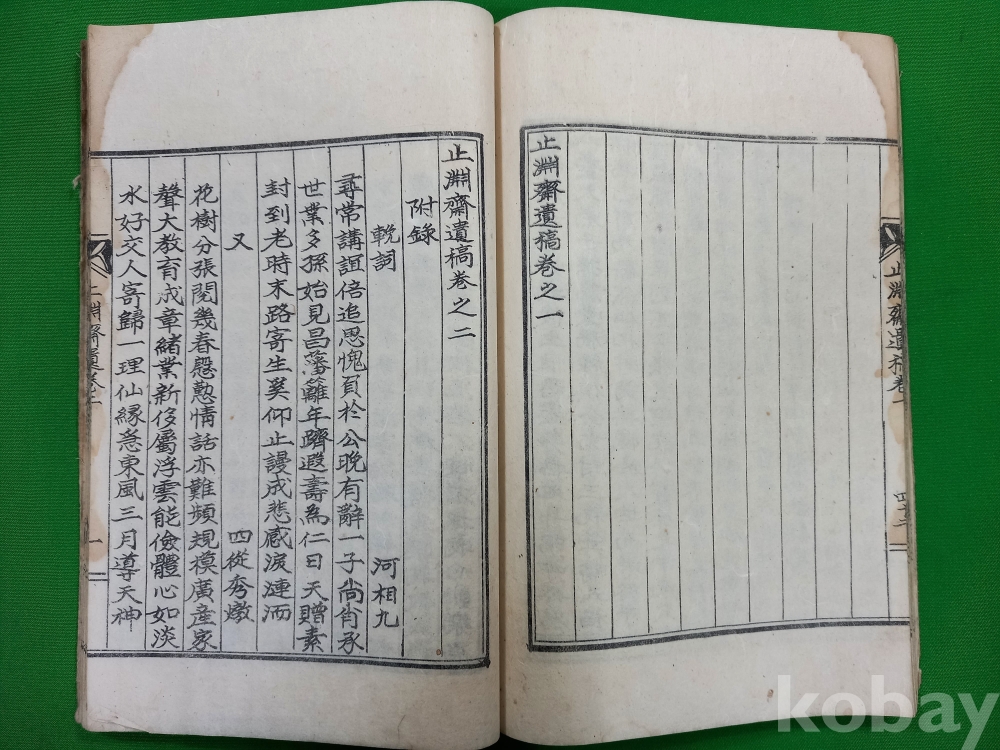 止淵齋遺稿卷一
四十二
止淵齋遺稿卷之一
止淵齋遺稿卷之二
附錄
輓詞 河相九
尋常講誼倍追思愧負於公晚有辭一子尙肯承
世業多孫始見昌籓籬年躋遐壽為仁日天贈素
封到老時末路寄生奚仰止謾成悲感淚漣洏
又 四從秀燉
花樹分張閱幾春慇懃情話亦難頻規模廣産家
聲大敎育成章緖業新侈屬浮雲能儉體心如淡
水好交人寄歸一理仙緣急東風三月導天神
止淵齋遺稿卷二
一
kobay